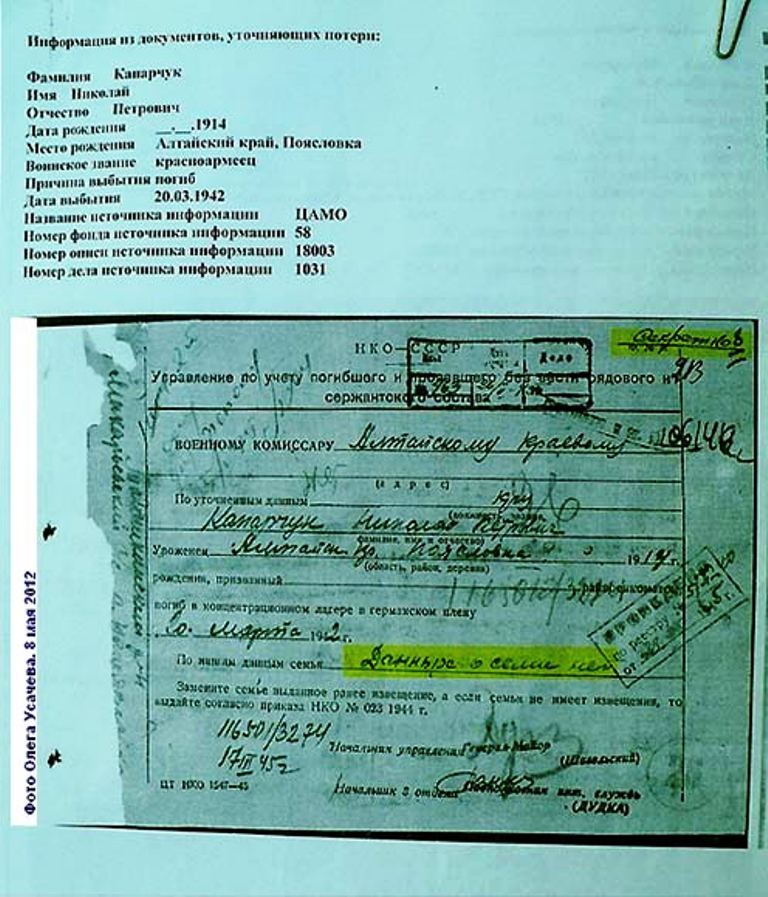 Информация из документов, уточняющих потери:
Фамилия Капарчук
Имя Николай
Отчество Петрович
Дата рождения __.__.1914
Место рождения Алтайский край, Поясловка
Воинское звание красноармеец
Причина выбытия погиб
Дата выбытия 20.03.1942
Название источника информации ЦАМО
Номер фонда источника информации 58
Номер описи источника информации 18003
Номер дела источника информации 1031
НКО—СССР
Дело
Управление по учету погибшего и пропавшего без вести рядового и
сержантского состава
ВОЕННОМУ КОМИССАРУ Алтайскому краевому
(адрес)
По уточненным данным кр-ц
Капарчук Николай Петрович
(фамилия, имя и отчество)
Уроженец Алтайск. кр. Поясловка 1914 г.
(область, район, деревня)
рождения, призванный райвоенкоматом
погиб в концентрационном лагере в германском плену
20 марта 1942 г.
По нашим данным семья Данных о семье нет
Замените семье выданное ранее извещение, а если семья не имеет извещения, то
выдайте согласно приказа НКО № 023 1944 г.
116501/3274
Начальник управления Генерал-Майор
17 III 45г
ЦТ НКО 1547—45
Начальник 8 отдела инт. службы
(ДУДКА)
Фото Олега Усачева. 8 мая 2012